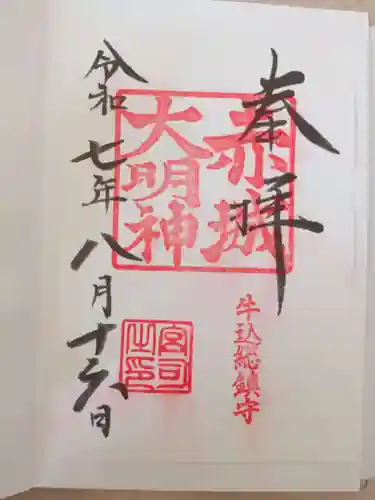 奉拝
赤城
大明神
牛込総鎮守
宮司
之印
令和七年八月十六日